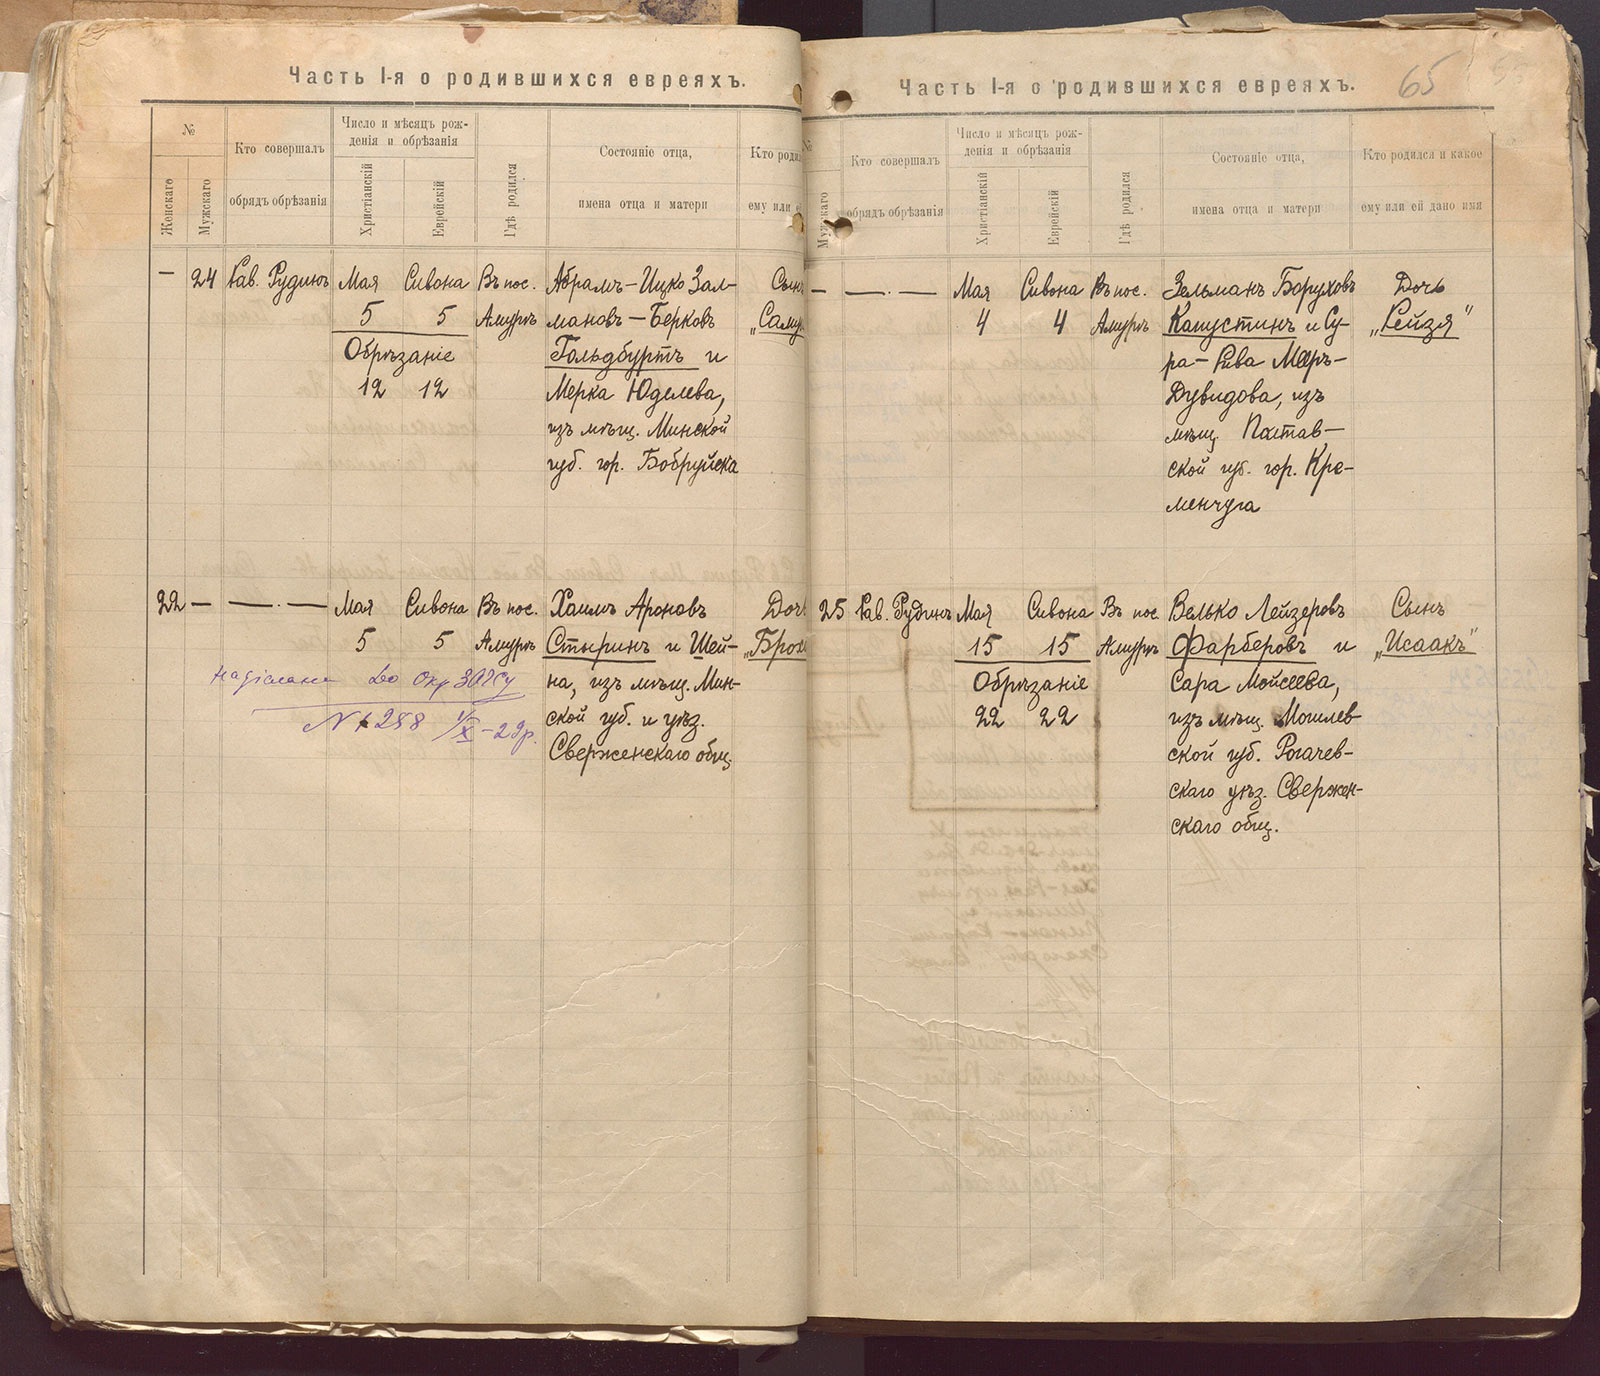 Часть I-я о родившихся евреяхъ.
№
Женскаго
Мужскаго
Кто совершалъ
обрядъ обрѣзанія
Число и мѣсяцъ рож-
денія и обрѣзанія
Христіанскій
Еврейскій
Гдѣ родился
Состояніе отца,
имена отца и матери
Кто роди
ему или е
— 24 Рав. Рудинъ Мая Сивона Въ пос. Абрамъ-Ицко Зал- Сынъ
5 5 Амуръ мановъ-Берковъ „Саму
Обрѣзаніе Гольдбуртъ и
12 12 Мерка Юделева,
изъ мѣщ. Минской
губ. гор. Бобруйска
22 — —.— Мая Сивона Въ пос. Хаимъ Ароновъ Дочь
5 5 Амуръ Стыринъ и Шей- „Брох
надіслано до Окр ЗАГСу на, изъ мѣщ. Мин-
№ 288 1/X-29р. ской губ. и уѣз.
Сверженскаго общ.
Часть I-я о родившихся евреяхъ.
65
№
Мужскаго
Кто совершалъ
обрядъ обрѣзанія
Число и мѣсяцъ рож-
денія и обрѣзанія
Христіанскій
Еврейскій
Гдѣ родился
Состояніе отца,
имена отца и матери
Кто родился и какое
ему или ей дано имя
— —.— Мая Сивона Въ пос. Зельманъ Боруховъ Дочь
4 4 Амуръ Капустинъ и Су- „Рейзя"
ра-Рива Меръ-
Дувидова, изъ
мѣщ. Полтав-
ской губ. гор. Кре-
менчуга
25 Рав. Рудинъ Мая Сивона Въ пос. Велько Лейзеровъ Сынъ
15 15 Амуръ Фарберовъ и „Исаакъ"
Обрѣзаніе Сара Мойсеева,
22 22 изъ мѣщ. Могилев-
ской губ. Рогачев-
скаго уѣз. Свержен-
скаго общ.